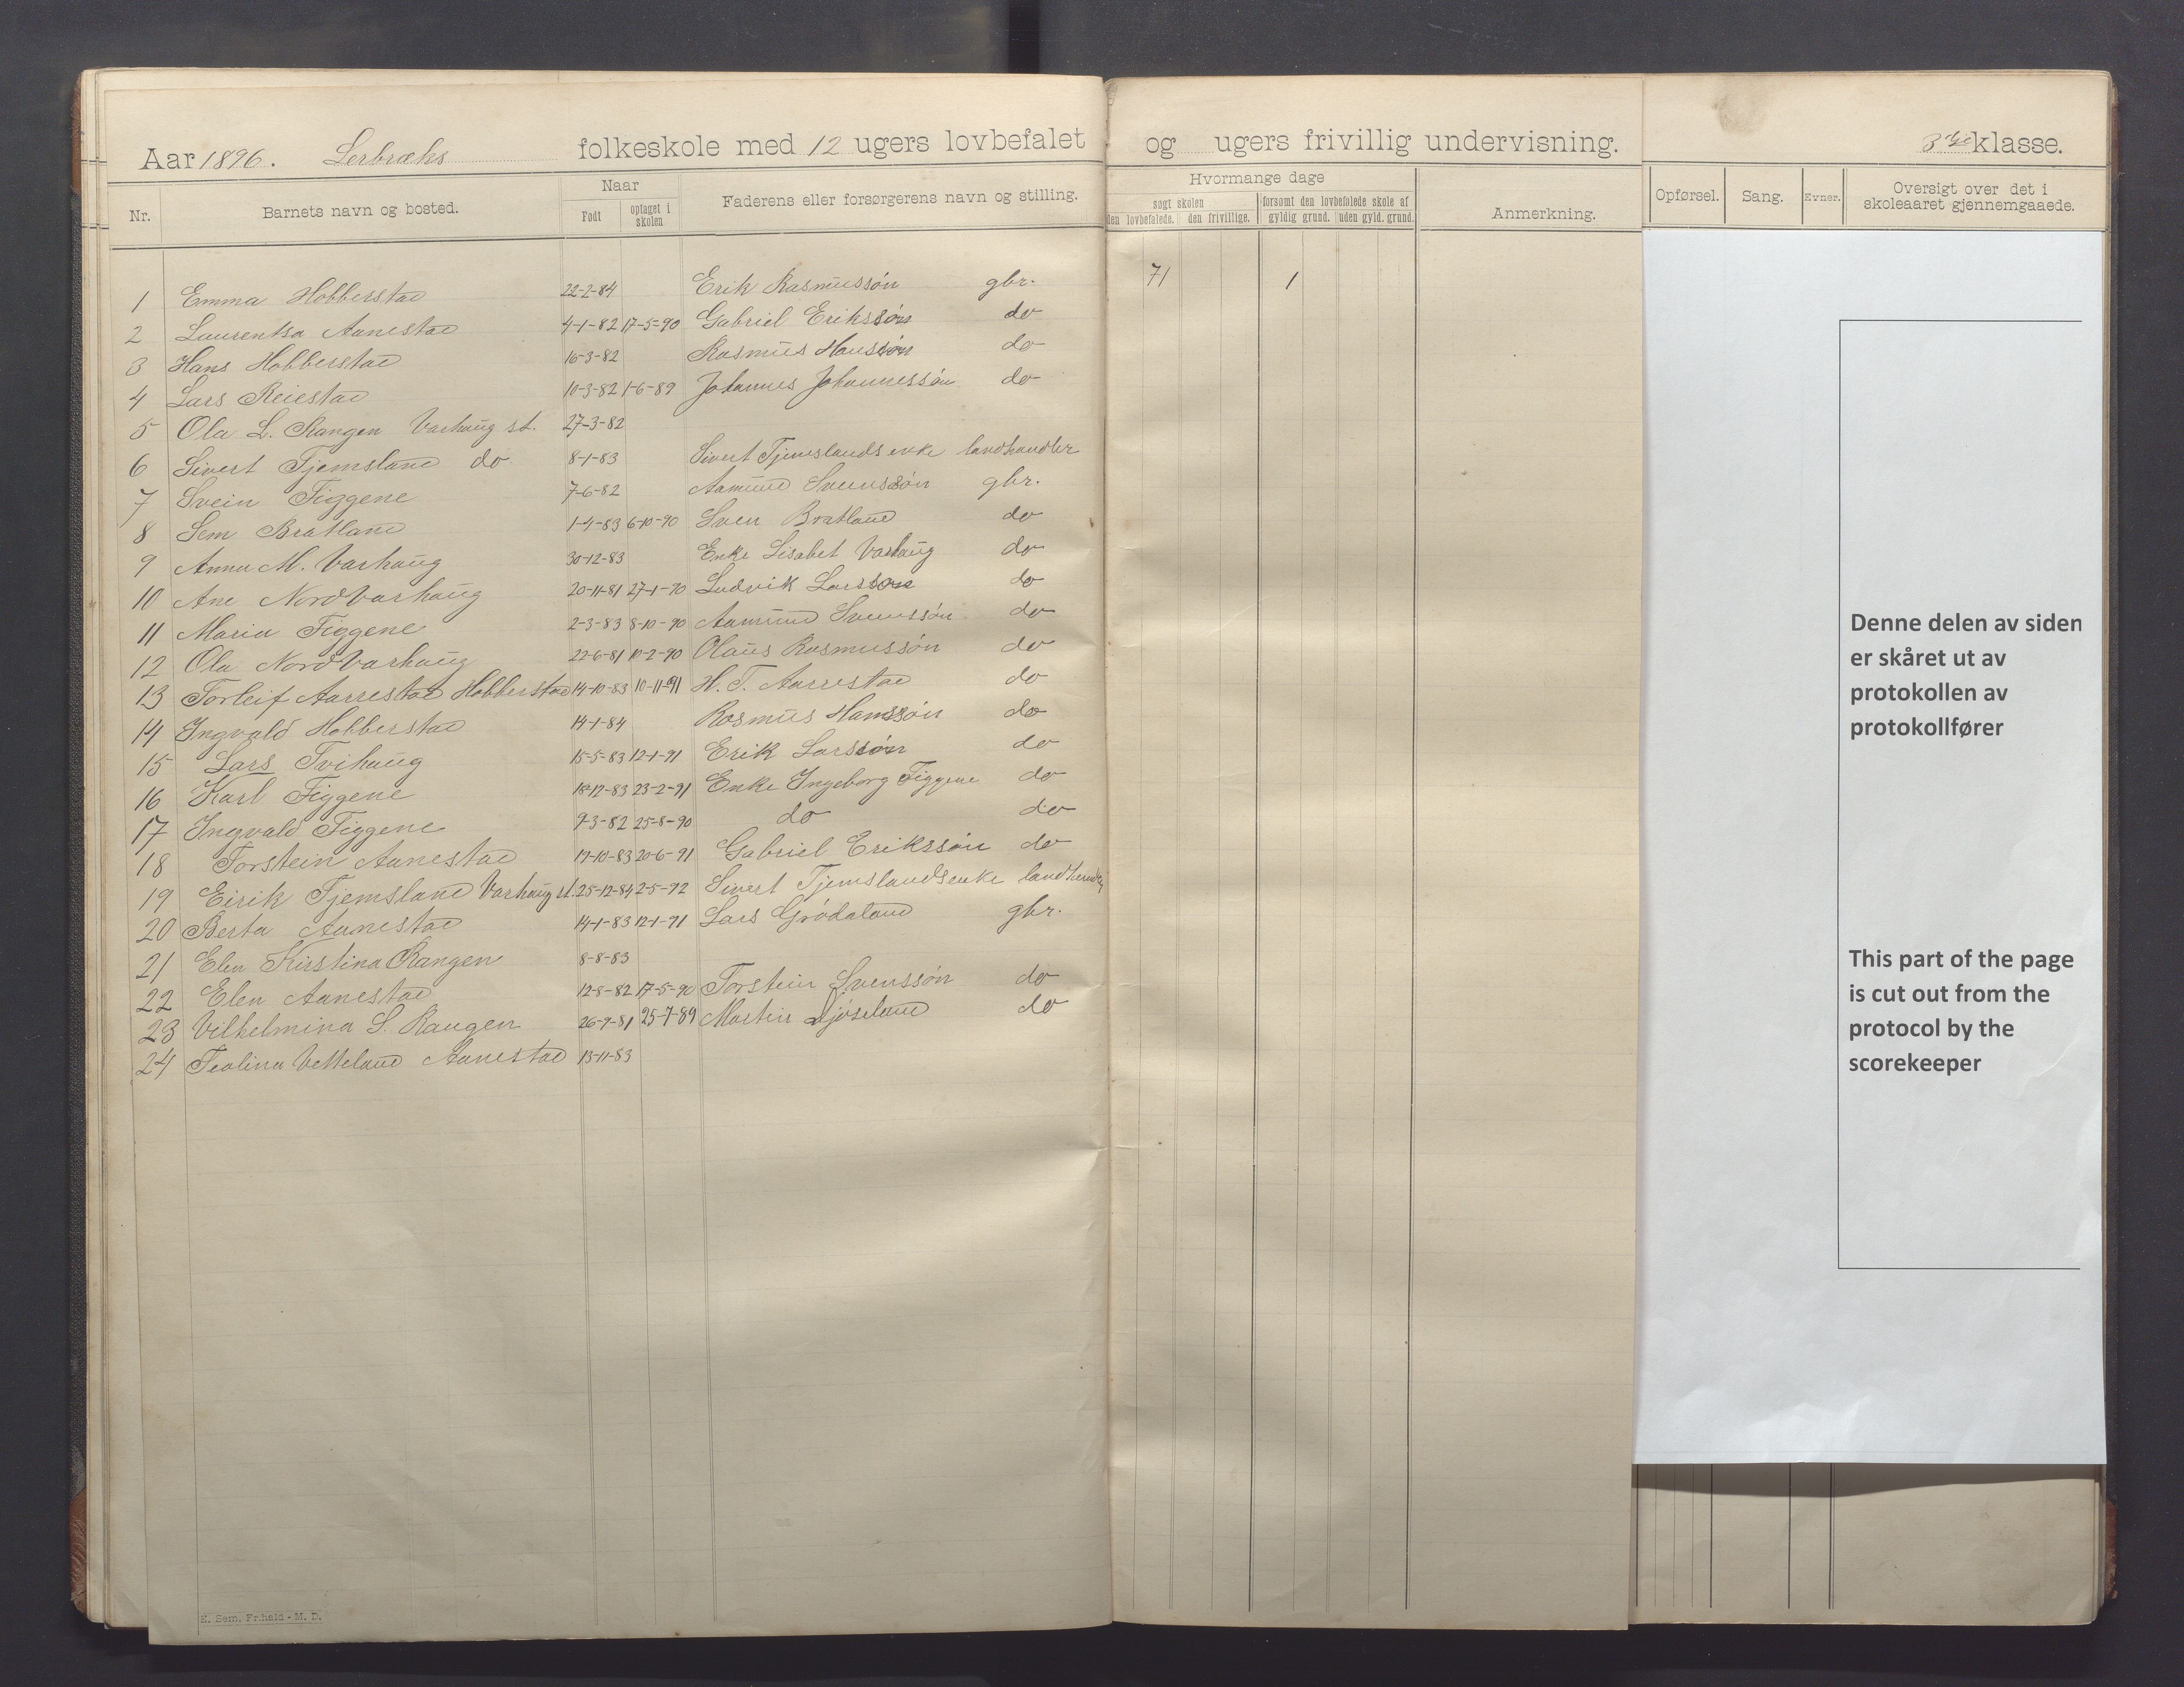 Aar 1896. Lerbræks folkeskole med 12 ugers lovbefalet og ugers frivillig undervisning. 3dje klasse.
Nr. Barnets navn og bosted. Naar Født optaget i skolen Faderens eller forsørgerens navn og stilling. Hvormange dage søgt skolen den lovbefalede. den frivillige. forsømt den lovbefalede skole af gyldig grund. uden gyld. grund. Anmerkning. Opførsel. Sang. Evner. Oversigt over det i skoleaaret gjennemgaaede.
1 Emma Hobberstad 22-2-84 Erik Rasmussøn gbr. 71 1
2 Laurentsa Aanestad 4-1-82 17-5-90 Gabriel Erikssøn do
3 Hans Hobberstad 16-3-82 Rasmus Hanssøn do
4 Lars Reiestad 10-3-82 1-6-89 Johannes Johannessøn do
5 Ola L. Rangen Varhaug st. 27-3-82
6 Sivert Tjemsland do 8-1-83 Sivert Tjemslands enke landhandler
7 Svein Figgene 7-6-82 Aamund Svenssøn gbr.
8 Sem Bratland 1-4-83 6-10-90 Sven Bratland do
9 Anna M. Varhaug 30-12-83 Enke Lisabet Varhaug do
10 Ane Nord Varhaug 20-11-81 27-1-90 Ludvik Larsson do
11 Maria Figgene 2-3-83 8-10-90 Aamund Svenssøn do
12 Ola Nord Varhaug 22-6-81 10-2-90 Olaus Rasmussøn do
13 Torleif Aarrestad Hobberstad 14-10-83 10-11-91 H. T. Aarrestad do
14 Ingvald Hobberstad 14-1-84 Rasmus Hanssøn do
15 Lars Tvihaug 15-5-83 12-1-91 Erik Larssøn do
16 Karl Figgene 18-12-83 23-2-91 Enke Ingeborg Figgene do
17 Ingvald Figgene 9-3-82 25-8-90 do do
18 Torstein Aanestad 17-10-83 20-6-91 Gabriel Erikssøn do
19 Eirik Tjemsland Varhaug st. 25-12-84 2-5-92 Sivert Tjemslands enke landhandler
20 Berta Aanestad 14-1-83 12-1-91 Lars Grødaland gbr.
21 Elen Kirstina Rangen 8-8-83
22 Elen Aanestad 12-8-82 17-5-90 Torstein Svenssøn do
23 Vilhelmina S. Raugen 26-9-81 25-7-89 Martin Njøseland do
24 Teolina Vetteland Aanestad 13-11-83
E. Sem, Fr.hald - M. D.
Denne delen av siden
er skåret ut av
protokollen av
protokollfører
This part of the page
is cut out from the
protocol by the
scorekeeper